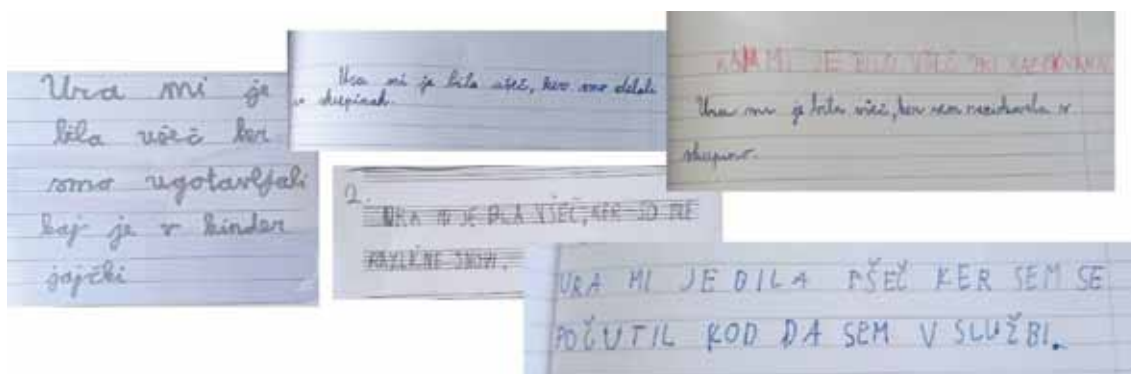 Ura mi je
bila všeč ker
smo ugotavljali
kaj je v kinder
jajčki
Ura mi je bila všeč, ker smo delali
v skupinah.
KAJ MI JE BILO VŠEČ PRI
Ura mi je bila všeč, ker sem raziskovala v
skupino.
2.
URA MI JE BLA VŠEČ, KER SO BLE
SNOVI.
URA MI JE BILA PŠEČ KER SEM SE
POČUTIL KOD DA SEM V SLUŽBI.